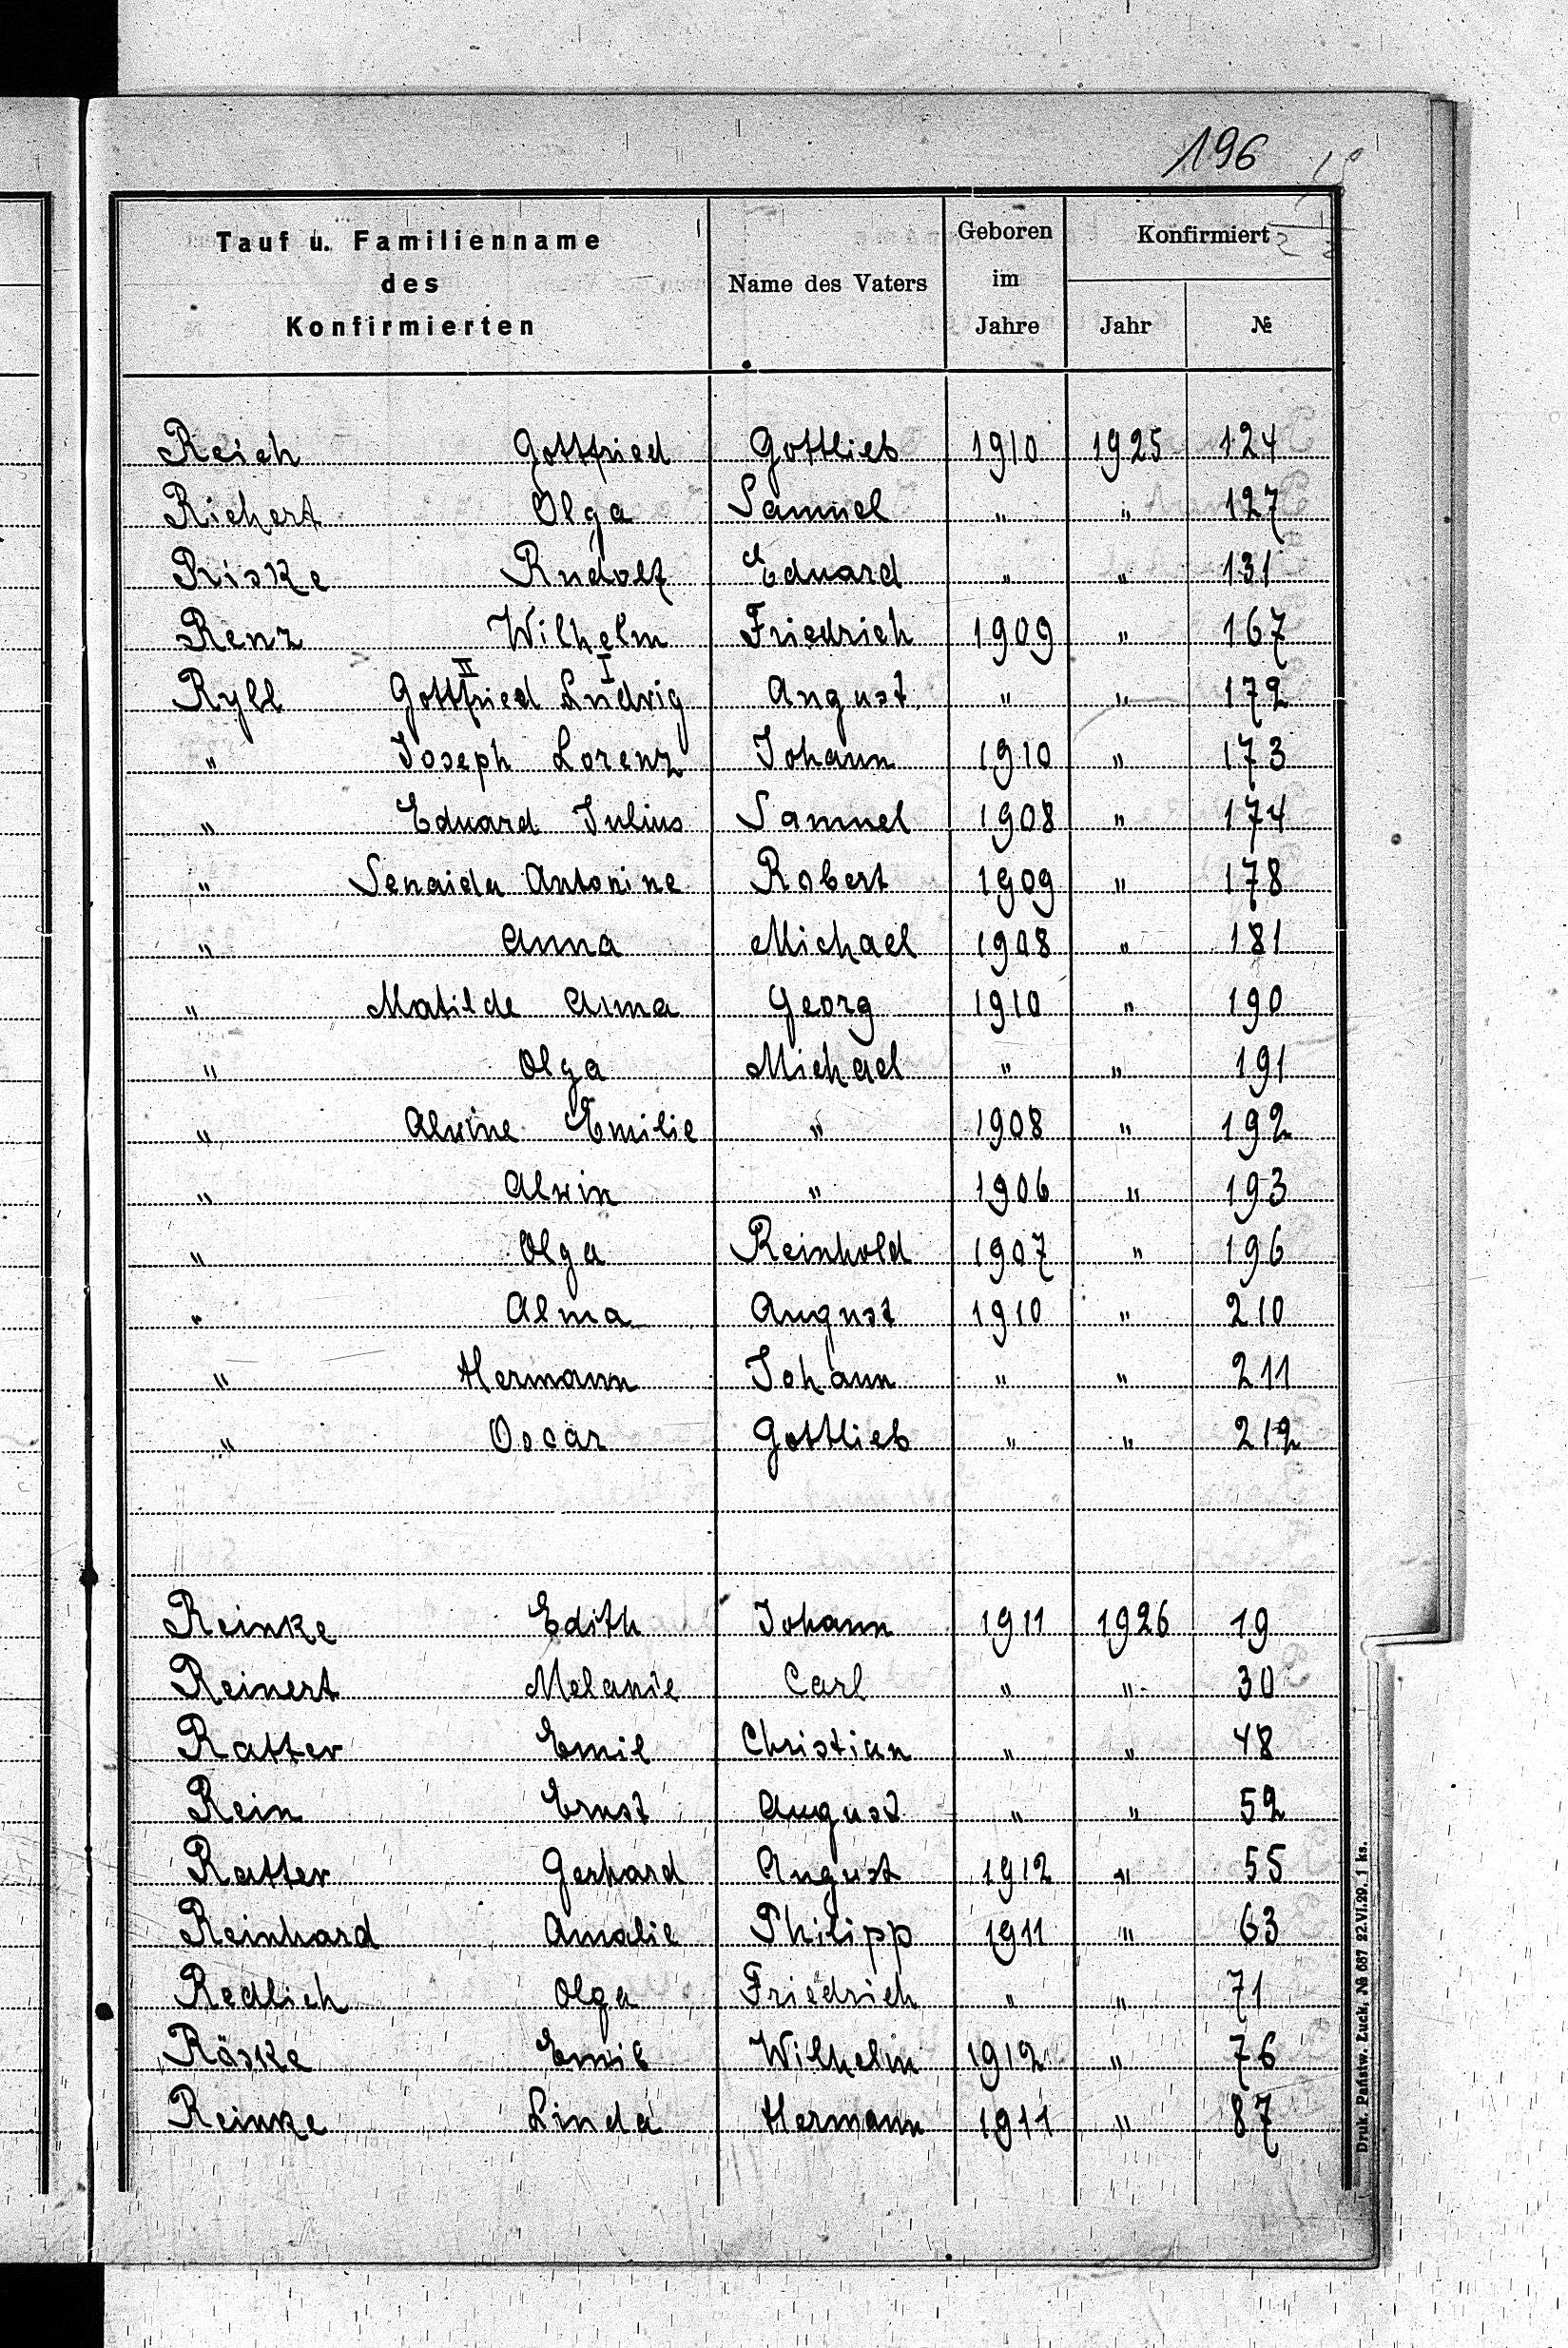 196
Tauf u. Familienname des Konfirmierten Name des Vaters Geboren im Jahre Konfirmiert Jahr №
Reich Gottfried Gottlieb 1910 1925 124
Richert Olga Samuel " " 127
Priske Rudolf Eduard " " 131
Renz Wilhelm Friedrich 1909 " 167
II I
Ryll Gottfried Ludwig August " " 172
" Joseph Lorenz Johann 1910 " 173
" Eduard Julius Samuel 1908 " 174
" Senaida Antonine Robert 1909 " 178
" Anna Michael 1908 " 181
" Matilde Alma Georg 1910 " 190
" Olga Michael " " 191
" Alwine Emilie " 1908 " 192
" Alwin " 1906 " 193
" Olga Reinhold 1907 " 196
" Alma August 1910 " 210
" Hermann Johann " " 211
" Oscar Gottlieb " " 212
Reinke Edith Johann 1911 1926 19
Reinert Melanie Carl " " 30
Ratter Emil Christian " " 48
Rein Ernst August " " 52
Ratter Gerhard August 1912 " 55
Reinhard Amalie Philipp 1911 " 63
Redlich Olga Friedrich " " 71
Räske Emil Wilhelm 1912 " 76
Reinke Linda Hermann 1911 " 87
Druk. Państw. Łuck, № 687 22.VI.29. 1 ks.